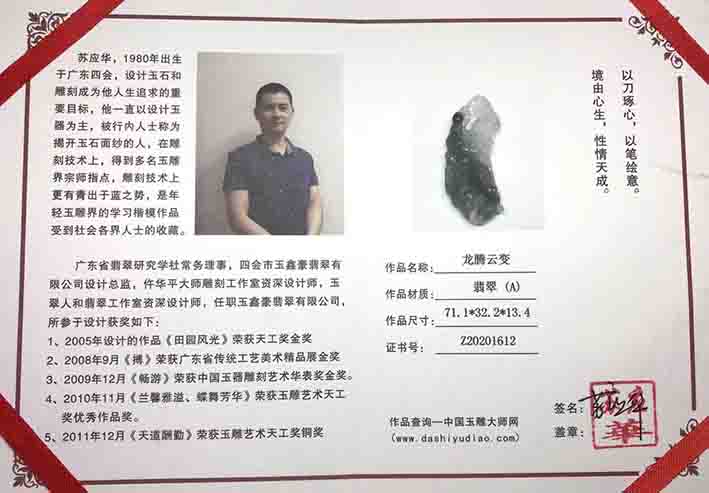 苏应华，1980年出生
于广东四会，设计玉石和
雕刻成为他人生追求的重
要目标，他一直以设计玉
器为主，被行内人士称为
揭开玉石面纱的人，在雕
刻技术上，得到多名玉雕
界宗师指点，雕刻技术上
更有青出于蓝之势，是年
轻玉雕界的学习楷模作品
受到社会各界人士的收藏。
广东省翡翠研究学社常务理事，四会市玉鑫豪翡翠有
限公司设计总监，仵华平大师雕刻工作室资深设计师，玉
翠人和翡翠工作室资深设计师，任职玉鑫豪翡翠有限公司，
所参于设计获奖如下：
1、2005年设计的作品《田园风光》荣获天工奖金奖
2、2008年9月《搏》荣获广东省传统工艺美术精品展金奖
3、2009年12月《畅游》荣获中国玉器雕刻艺术华表奖金奖。
4、2010年11月《兰馨雅溢、蝶舞芳华》荣获玉雕艺术天工
奖优秀作品奖。
5、2011年12月《天道酬勤》荣获玉雕艺术天工奖铜奖
以刀琢心，以笔绘意。
境由心生，性情天成。
作品名称：龙腾云变
作品材质：翡翠（A）
作品尺寸：71.1*32.2*13.4
证书号：Z20201612
作品查询—中国玉雕大师网
(www.dashiyudiao.com)
签名：
盖章：